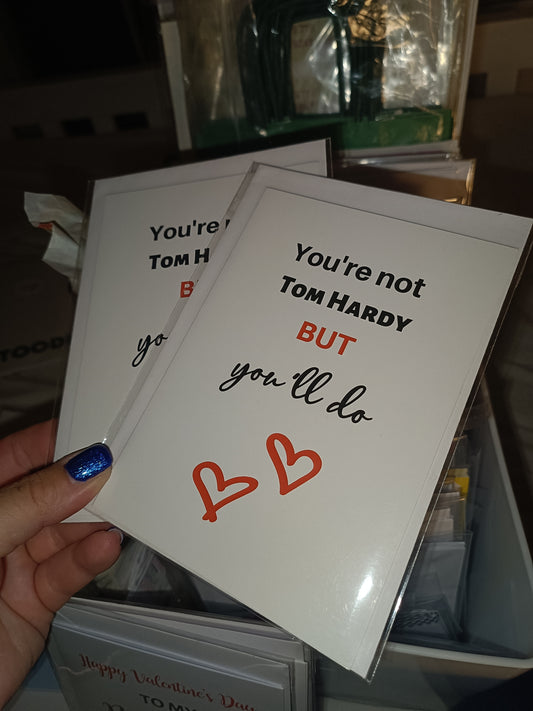 You're
TOM H
B
yo
You're not
TOM HARDY
BUT
you'll do
TOOD
Happy Valentine's Day
TO MY